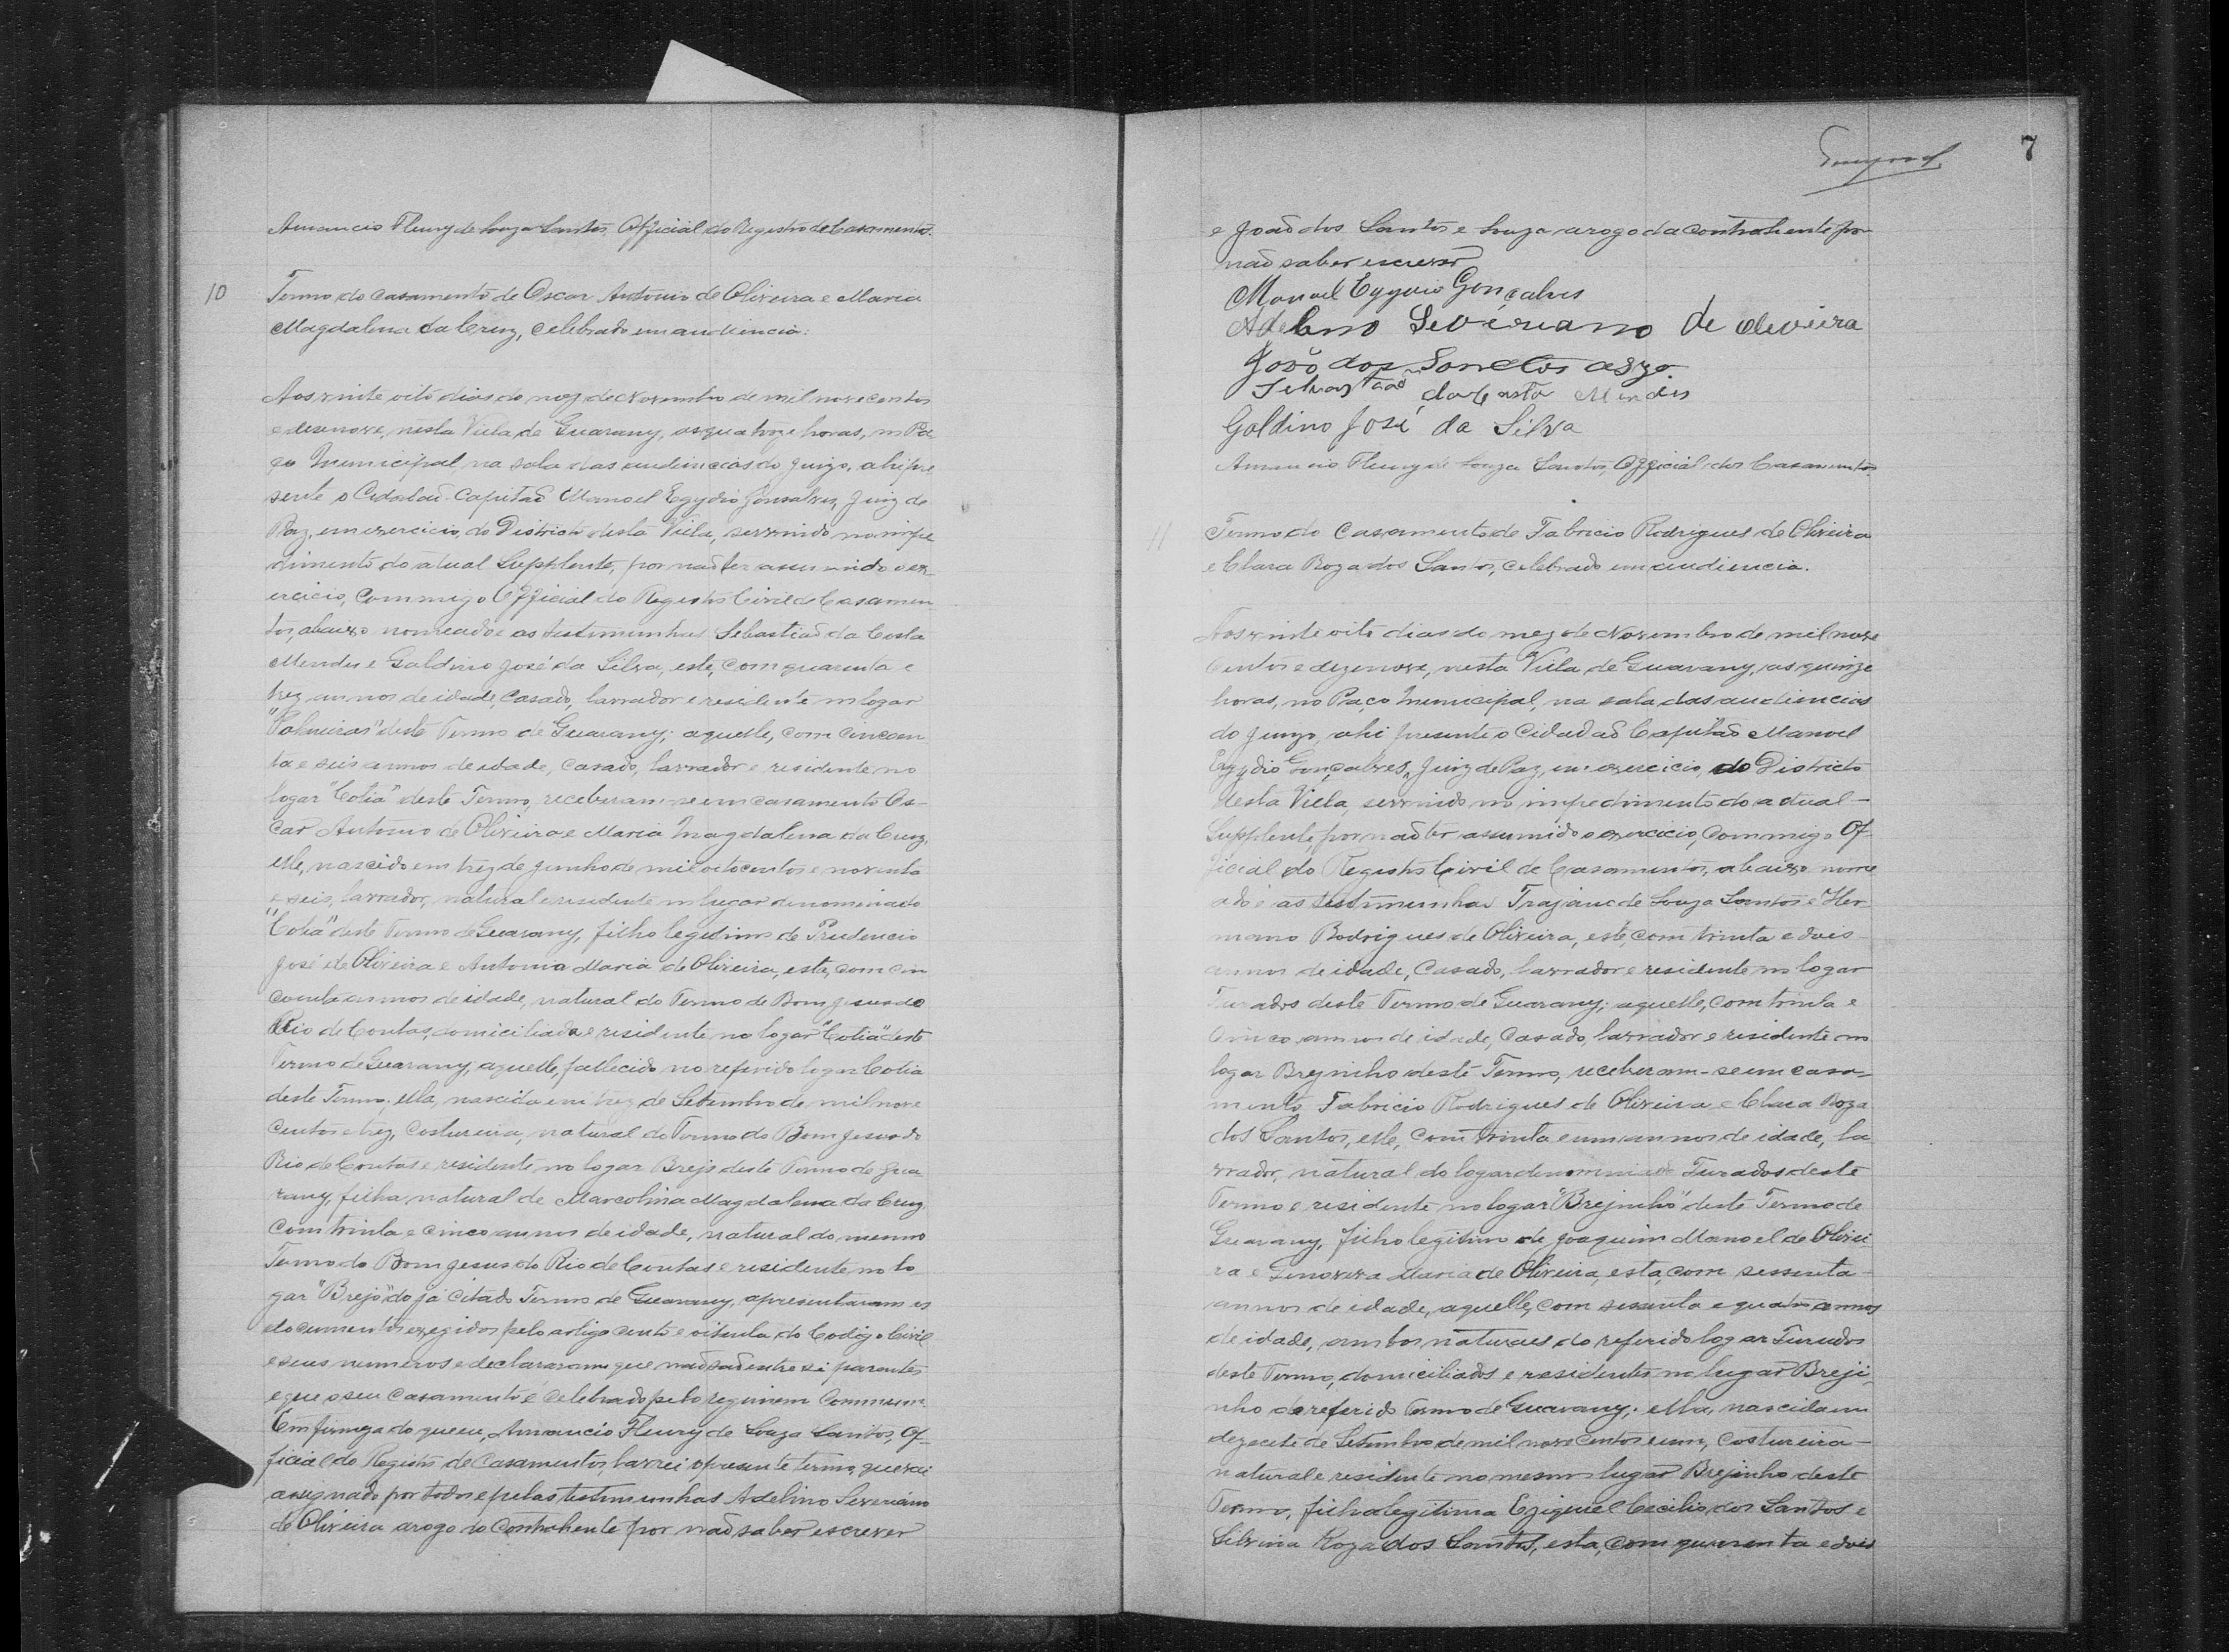 Amancio Fleury de Souza Santos, Official do Registro de Casamentos.
10
Termo do casamento de Oscar Antonio de Oliveira e Maria
Magdalena da Cruz, celebrado em audiencia:
Aos vinte oito dias do mez de Novembro de mil nove centos
e desenove, nesta Villa de Guarany, as quatorze horas, no Pa
ço Municipal, na sala das audiencias do Juizo, ahi pre
sente o Cidadaõ Capitaõ Manoel Egydio Gonsalves, Juiz de
Paz, em exercicio, do Districto desta Villa, servindo no impe
dimento do atual Supplente, por naõ ter assumido o ex-
ercicio, Commigo Official do Registro Civil de Casamen
tos, abaixo nomeado e as testimunhas Sebastiaõ da Costa
Mendes e Galdino José da Silva, este, com quarenta e
trez annos de idade, Casado, lavrador e residente no logar
"Palmeiras" deste Termo de Guarany; aquelle, com cincoen
ta e seis annos de idade, casado, lavrador e residente no
logar "Cotia" deste Termo, receberam-se em casamento Os-
car Antonio de Oliveira e Maria Magdalena da Cruz,
elle, nascido em trez de Junho de mil oitocentos e noventa
e seis, lavrador, natural e residente no lugar denominado
"Cotia" deste Termo de Guarany, filho legitimo de Prudencio
José de Oliveira e Antonia Maria de Oliveira, esta, com cin
coenta annos de idade, natural do Termo de Bom Jesus do
Rio de Contas, domiciliada e residente no logar "Cotia" deste
Termo de Guarany, aquelle, fallecido no referido logar Cotia
deste Termo; ella, nascida em trez de Setembro de mil nove
centos e trez, Costureira, natural do Termo do Bom Jesus do
Rio de Contas e residente no logar Brejo deste Termo de Gua
rany, filha natural de Marcolina Magdalena da Cruz,
com trinta e cinco annos de idade, natural do mesmo
Termo do Bom Jesus do Rio de Contas e residente no lo
gar "Brejo" do já citado Termo de Guarany, apresentaram os
documentos exegidos pelo artigo cento e oitenta do Codigo Civil
e seus numeros e declararam que naõ saõ entre si parentes
e que o seu casamento é celebrado pelo regimem Commum.
Em firmeza do que eu, Amancio Fleury de Souza Santos, Of-
ficial do Registro de Casamentos, lavrei o presente termo, que vai
assignado por todos e pelas testimunhas Adelino Severiano
de Oliveira arogo do Contrahente por naõ saber escrever
7
e Joaõ dos Santos e Souza arogo da contrahente por
naõ saber escrever
Manoel Egydio Gonçalves
Adelino Severiano de Oliveira
João dos Sanctos
Sebastiaõ da Costa Mendes
Galdino José da Silva
Amancio Fleury de Souza Santos, Official dos Casamentos.
11
Termo do Casamento de Fabricio Rodrigues de Oliveira
e Clara Roza dos Santos, celebrado em audiencia.
Aos vinte oito dias do mez de Novembro de mil nove
centos e dezenove, nesta Villa de Guarany, as quinze
horas, no Paço Municipal, na sala das audiencias
do Juizo, ahi presente o Cidadaõ Capitaõ Manoel
Egydio Gonçalves, Juiz de Paz, em exercicio, do Districto
desta Villa, servindo no impedimento do actual-
Supplente, por naõ ter assumido o exercicio, Commigo Of-
ficial do Registro Civil de Casamentos, abaixo nome
ado e as testimunhas Trajano de Souza Santos e Her
mano Rodrigues de Oliveira, este, com trinta e dois
annos de idade, Casado, lavrador e residente no logar
Furados deste Termo de Guarany; aquelle, com trinta e
cinco annos de idade, Casado, lavrador e residente no
logar Brejinho deste Termo, receberam-se em casa-
mento Fabricio Rodrigues de Oliveira e Clara Roza
dos Santos, elle, com trinta e um annos de idade, la
vrador, natural do logar denominado Furados deste
Termo e residente no logar "Brejinho" deste Termo de
Guarany, filho legitimo de Joaquim Manoel de Olivei-
ra e Genoveva Maria de Oliveira, esta, com sessenta-
annos de idade, aquelle, com sessenta e quatro annos
de idade, ambos naturaes do referido logar Furados
deste Termo, domiciliados e residentes no lugar Breji-
nho do referido Termo de Guarany; ella, nascida em
dezecete de Setembro de mil nove centos e um, Costureira-
natural e residente no mesmo lugar Brejinho deste
Termo, filha legitima Eziquiel Cecilio dos Santos e
Silvina Roza dos Santos, esta, com quarenta e dois